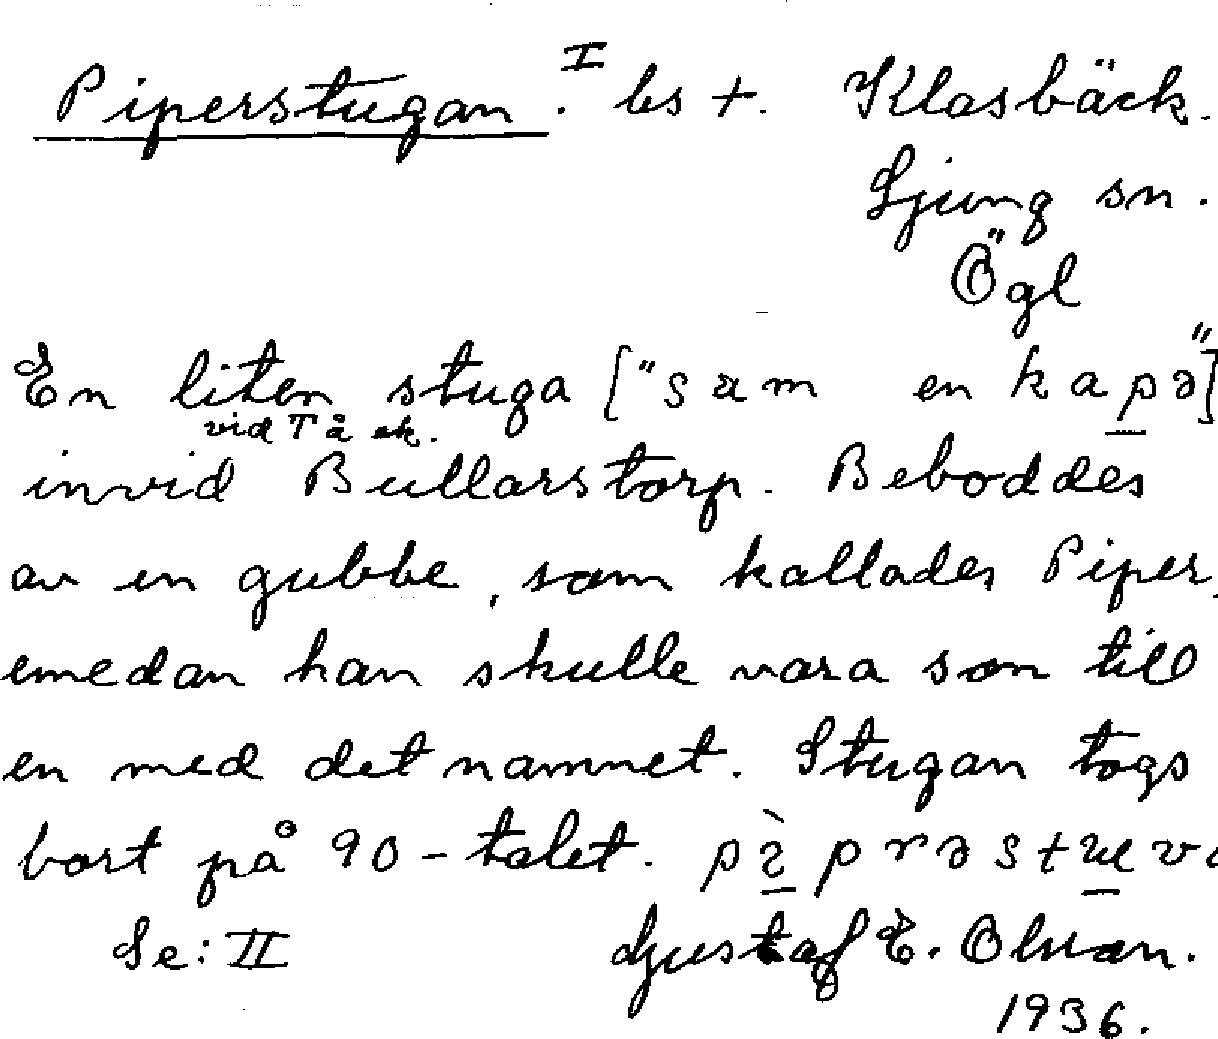 Piperstugan. I ls +. Klasbäck.
Ljung sn.
Ögl
En liten stuga ["sum en kapə"]
vid Tå ek.
invid Bullarstorp. Beboddes
av en gubbe, som kallades Piper,
emedan han skulle vara son till
en med det namnet. Stugan togs
bort på 90-talet.
Se: II Gustaf E. Olsson.
1936.